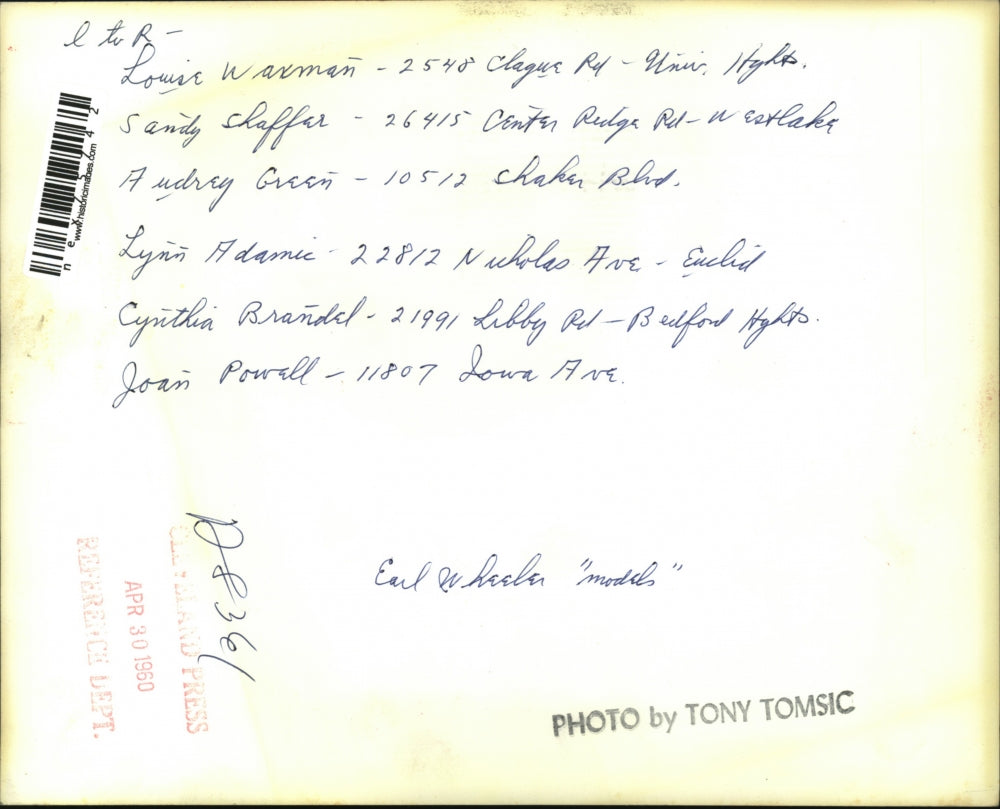 l to R -
Louise Waxman - 2548 Clague Rd - Univ. Hghts.
Sandy Shaffer - 26415 Center Ridge Rd - Westlake
Audrey Green - 10512 Shaker Blvd.
Lynn Adamic - 22812 Nicholas Ave - Euclid
Cynthia Brandel - 21991 Libby Rd - Bedford Hghts.
Joan Powell - 11807 Iowa Ave.
Earl Wheeler "models"
PHOTO by TONY TOMSIC
CLEVELAND PRESS
APR 30 1960
REFERENCE DEPT.
www.historicimages.com